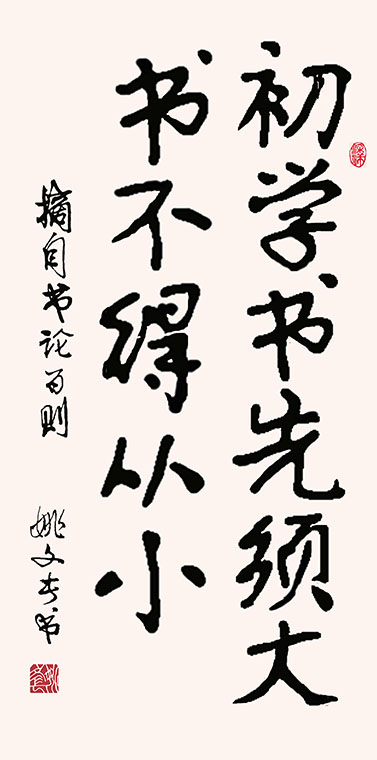 初学书先须大
书不得从小
摘自书论百则
姚文春书